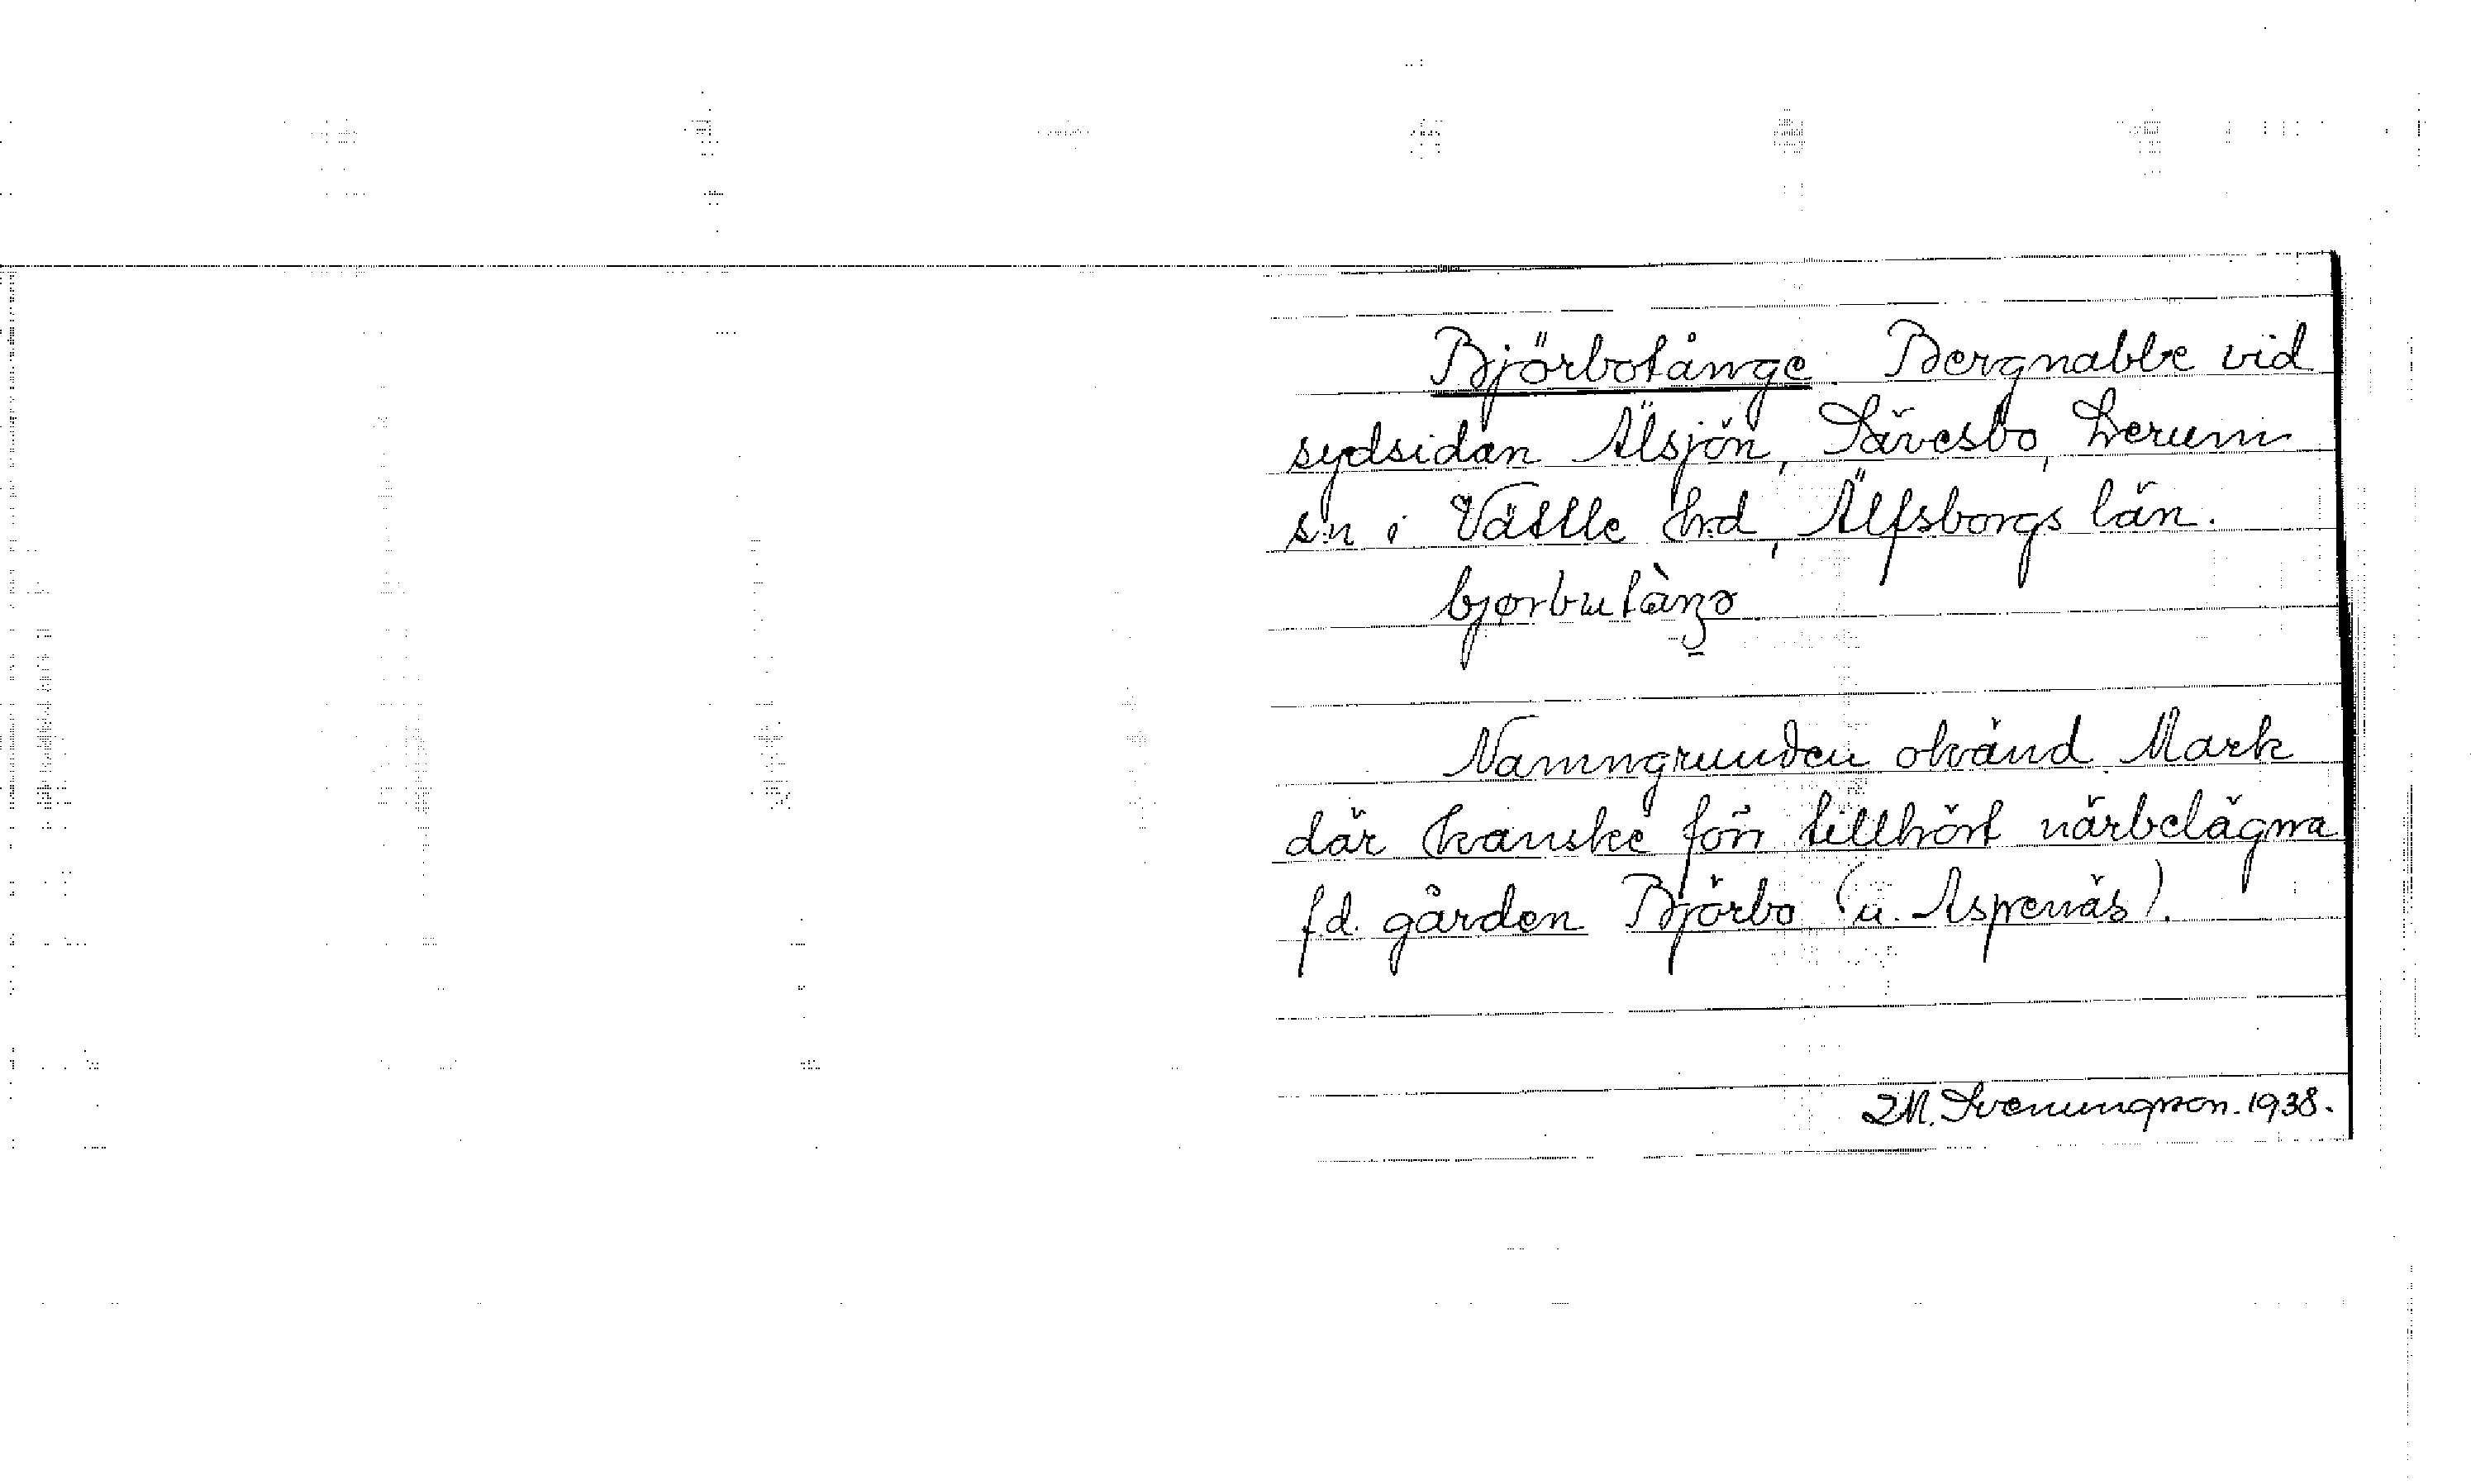 Björbotånge. Bergnabbe vid
sydsidan Älsjön, Sävesbo, Lerum
s:n i Vättle hd, Älfsborgs län.
bjørbutàŋə
Namngrunden okänd. Mark
där kanske förr tillhört närbelägna
f.d. gården Björbo (u. Aspenäs).
M. Svenungsson. 1938.